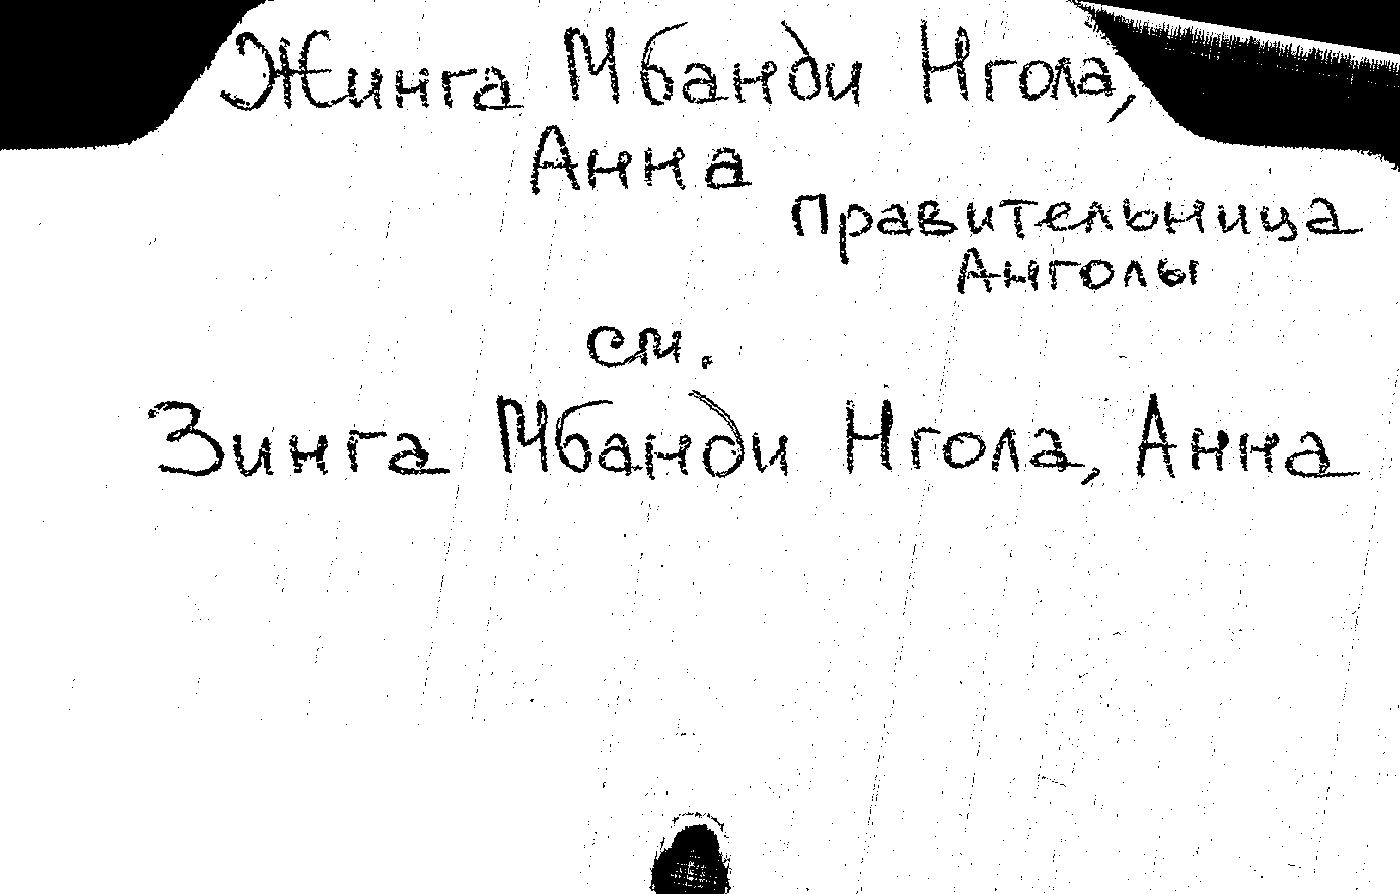 Жинга Мбанди Нгола,
Анна
правительница
Анголы
см.
Зинга Мбанди Нгола, Анна